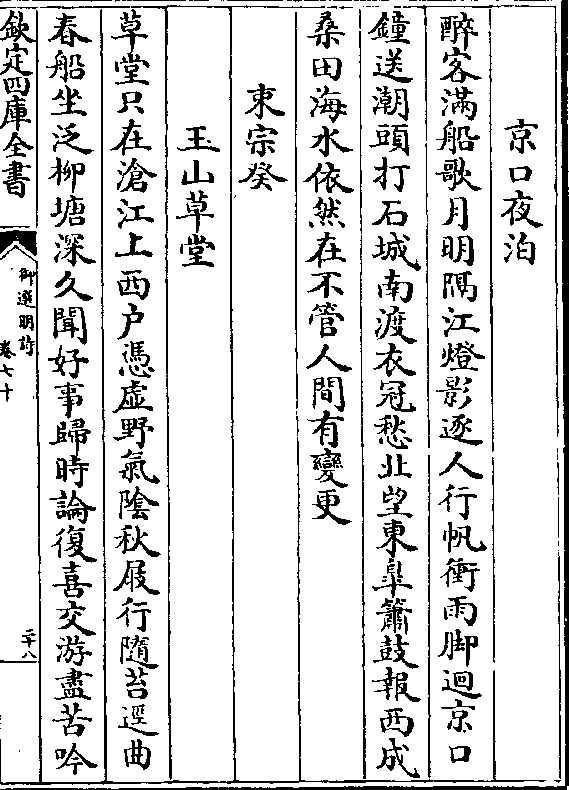 京口夜泊
醉客滿船歌月明隔江燈影逐人行帆衝雨脚迴京口
鐘送潮頭打石城南渡衣冠愁北望東臯簫鼓報西成
桑田海水依然在不管人間有變更
束宗癸
玉山草堂
草堂只在滄江上西户憑虚野氣陰秋屐行隨苔逕曲
春船坐泛柳塘深久聞好事歸時論復喜交游盡苦吟
欽定四庫全書
御選明詩
卷七十
二十八